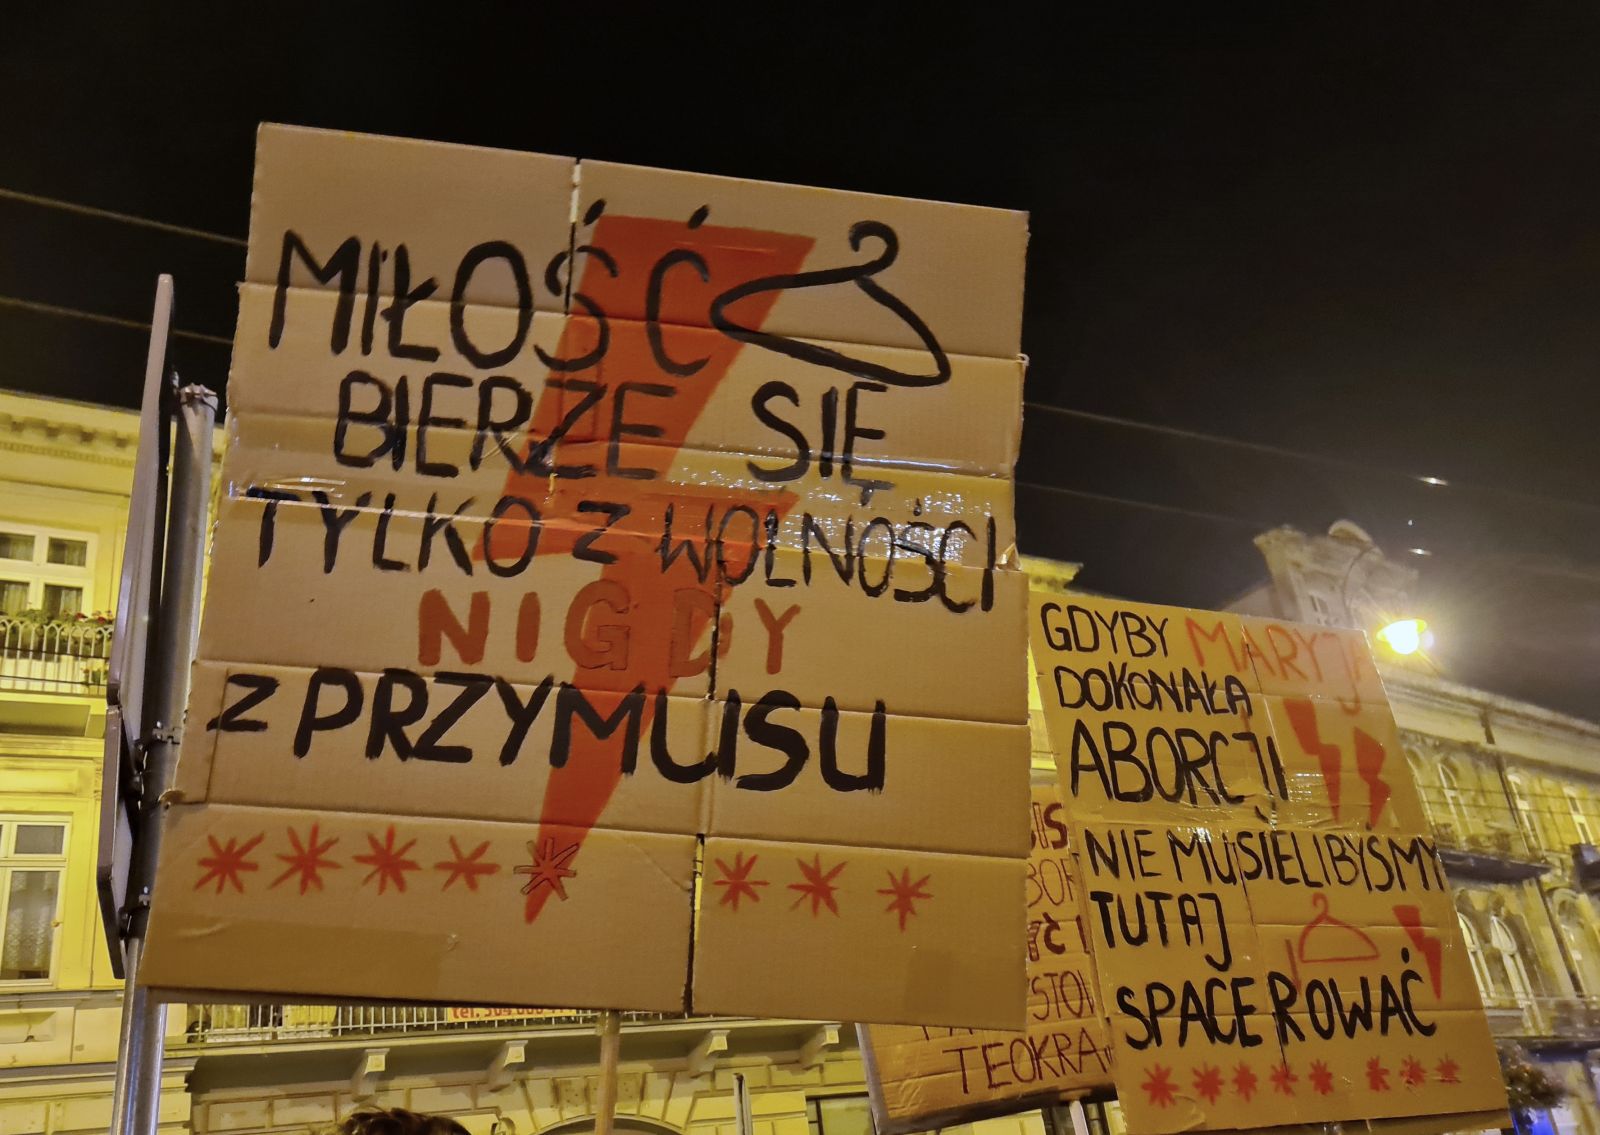 MIŁOŚĆ
BIERZE SIĘ
TYLKO Z WOLNOŚCI
NIGDY
Z PRZYMUSU
***** ***
GDYBY MARYJA
DOKONAŁA
ABORCJI
NIE MUSIELIBYŚMY
TUTAJ
SPACEROWAĆ
***** ***
TEOKRA
tel. 504 000